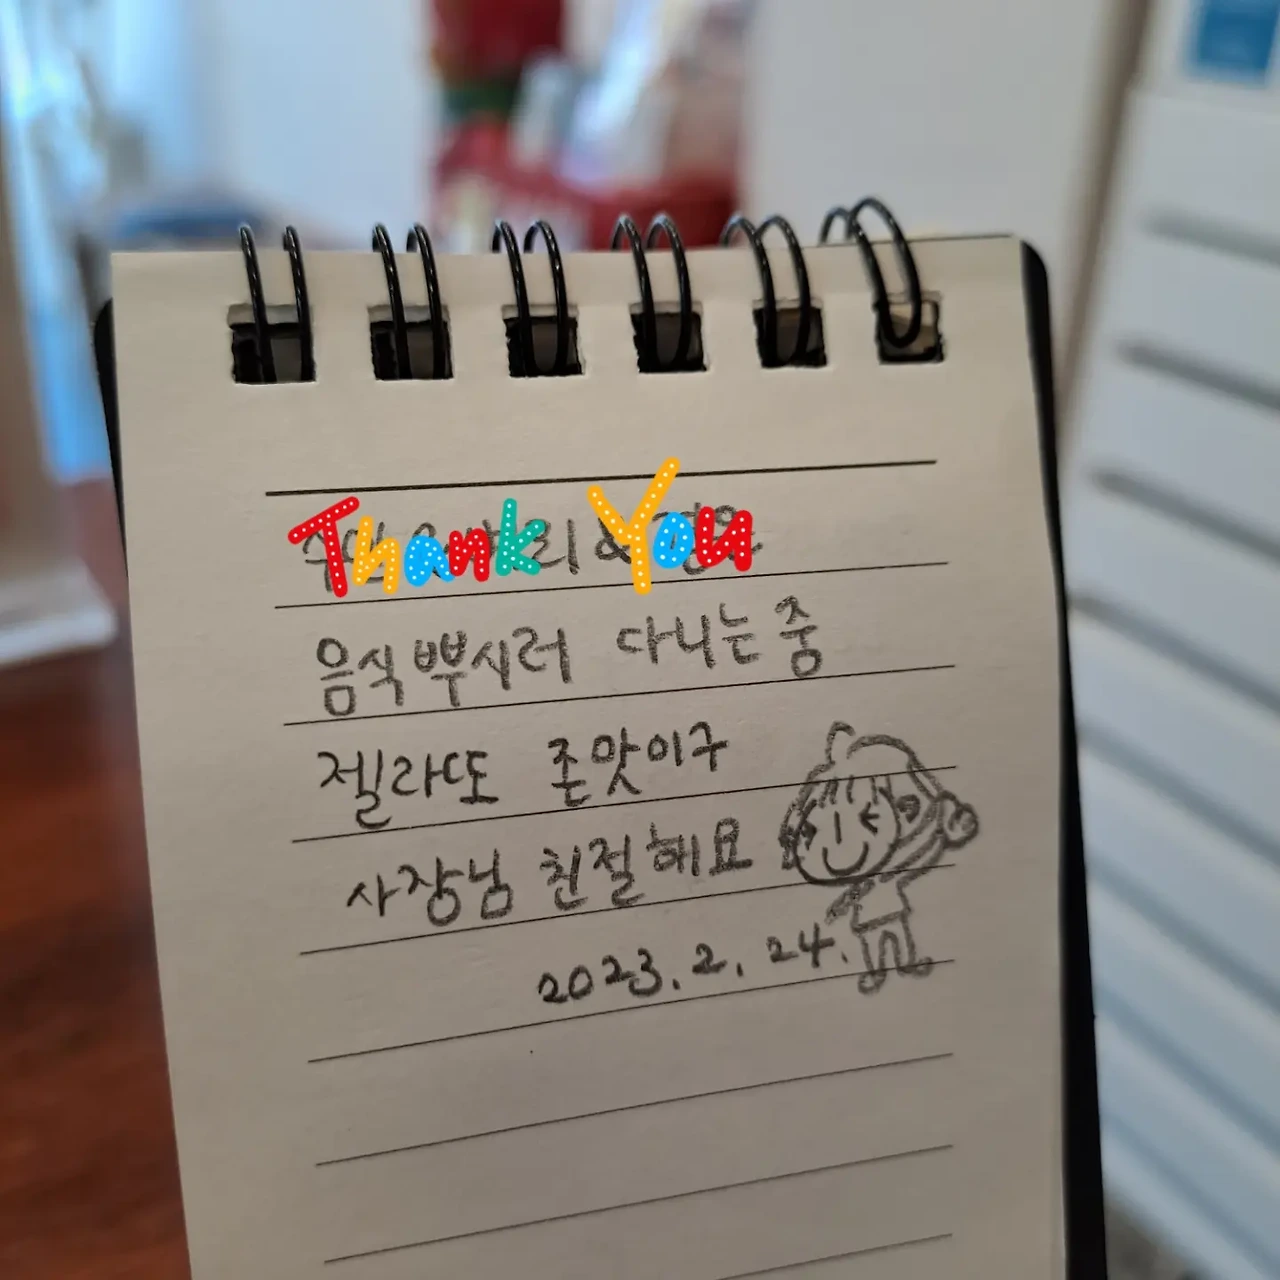 Thank You
음식 뿌시러 다니는 중
젤라또 존맛이구
사장님 친절해요
2023. 2. 24.